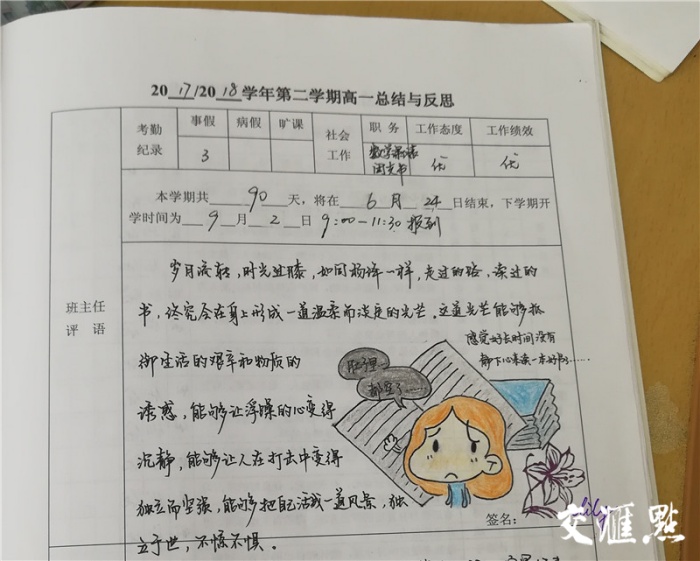 2017/2018学年第二学期高一总结与反思
考勤纪录 事假 病假 旷课 社会工作 职务 工作态度 工作绩效
3 数学课代 团支书 优 优
本学期共 90 天，将在 6 月 24 日结束，下学期开
学时间为 9 月 2 日 9:00-11:30 报到
班主任
评语
岁月流转，时光且膝，如同杨绛一样，走过的路，读过的
书，终究会在身上形成一道温柔而淡定的光芒，这道光芒能够抵
御生活的艰辛和物质的
诱惑，能够让浮躁的心变得
沉静，能够让人在打击中变得
独立而坚强，能够把自己活成一道风景，独
立于世，不惊不惧。
感觉好长时间没有
静下心来读一本好书……
肚子里
都空了……
签名：
lily
交汇點